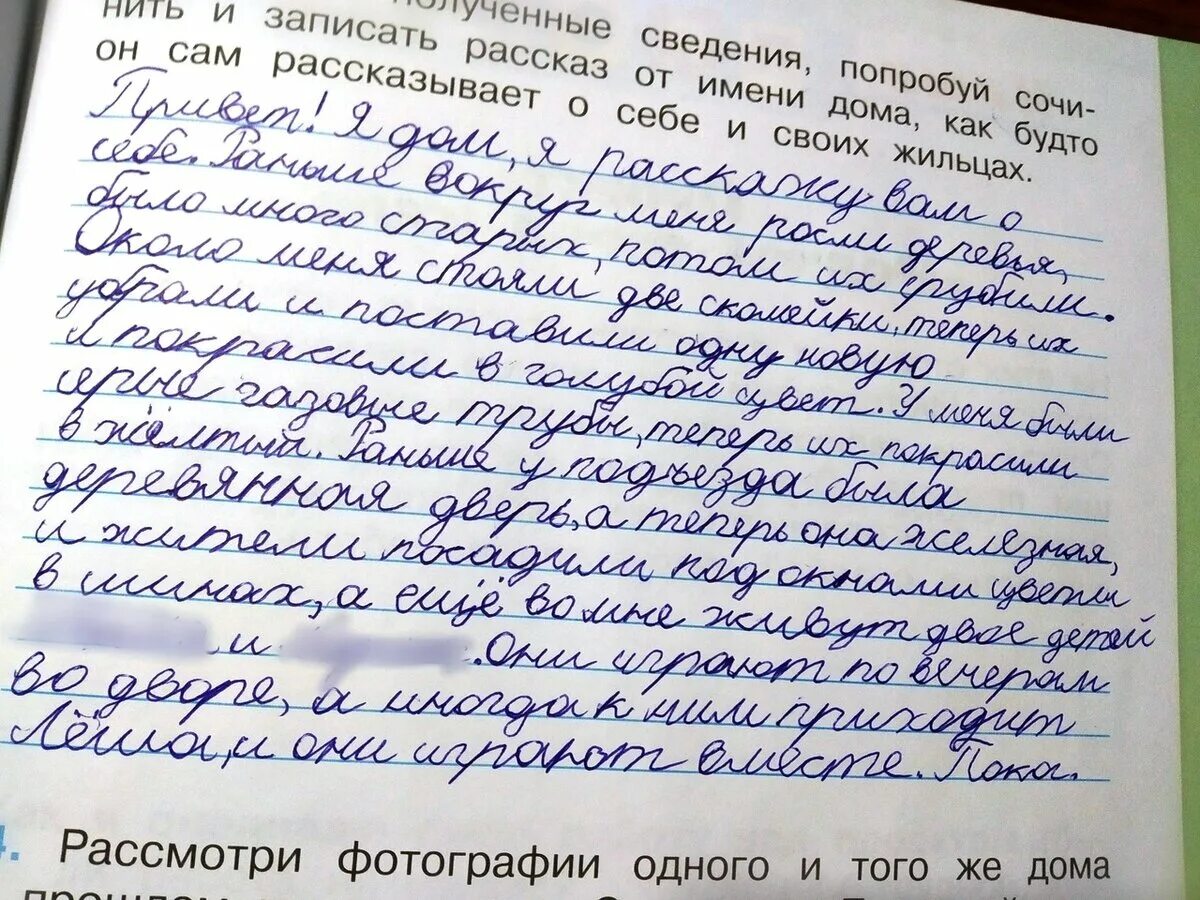 полученные сведения, попробуй сочи-
нить и записать рассказ от имени дома, как будто
он сам рассказывает о себе и своих жильцах.
Привет! Я дом, я расскажу вам о
себе. Раньше вокруг меня росли деревья,
было много старых, потом их срубили.
Около меня стояли две скамейки, теперь их
убрали и поставили одну новую
и покрасили в голубой цвет. У меня были
серые газовые трубы, теперь их покрасили
в жёлтый. Раньше у подъезда была
деревянная дверь, а теперь она железная,
и жители посадили под окнами цветы
в шинах, а ещё во мне живут двое детей
и . Они играют по вечерам
во дворе, а иногда к ним приходит
Лёша, и они играют вместе. Пока.
4. Рассмотри фотографии одного и того же дома